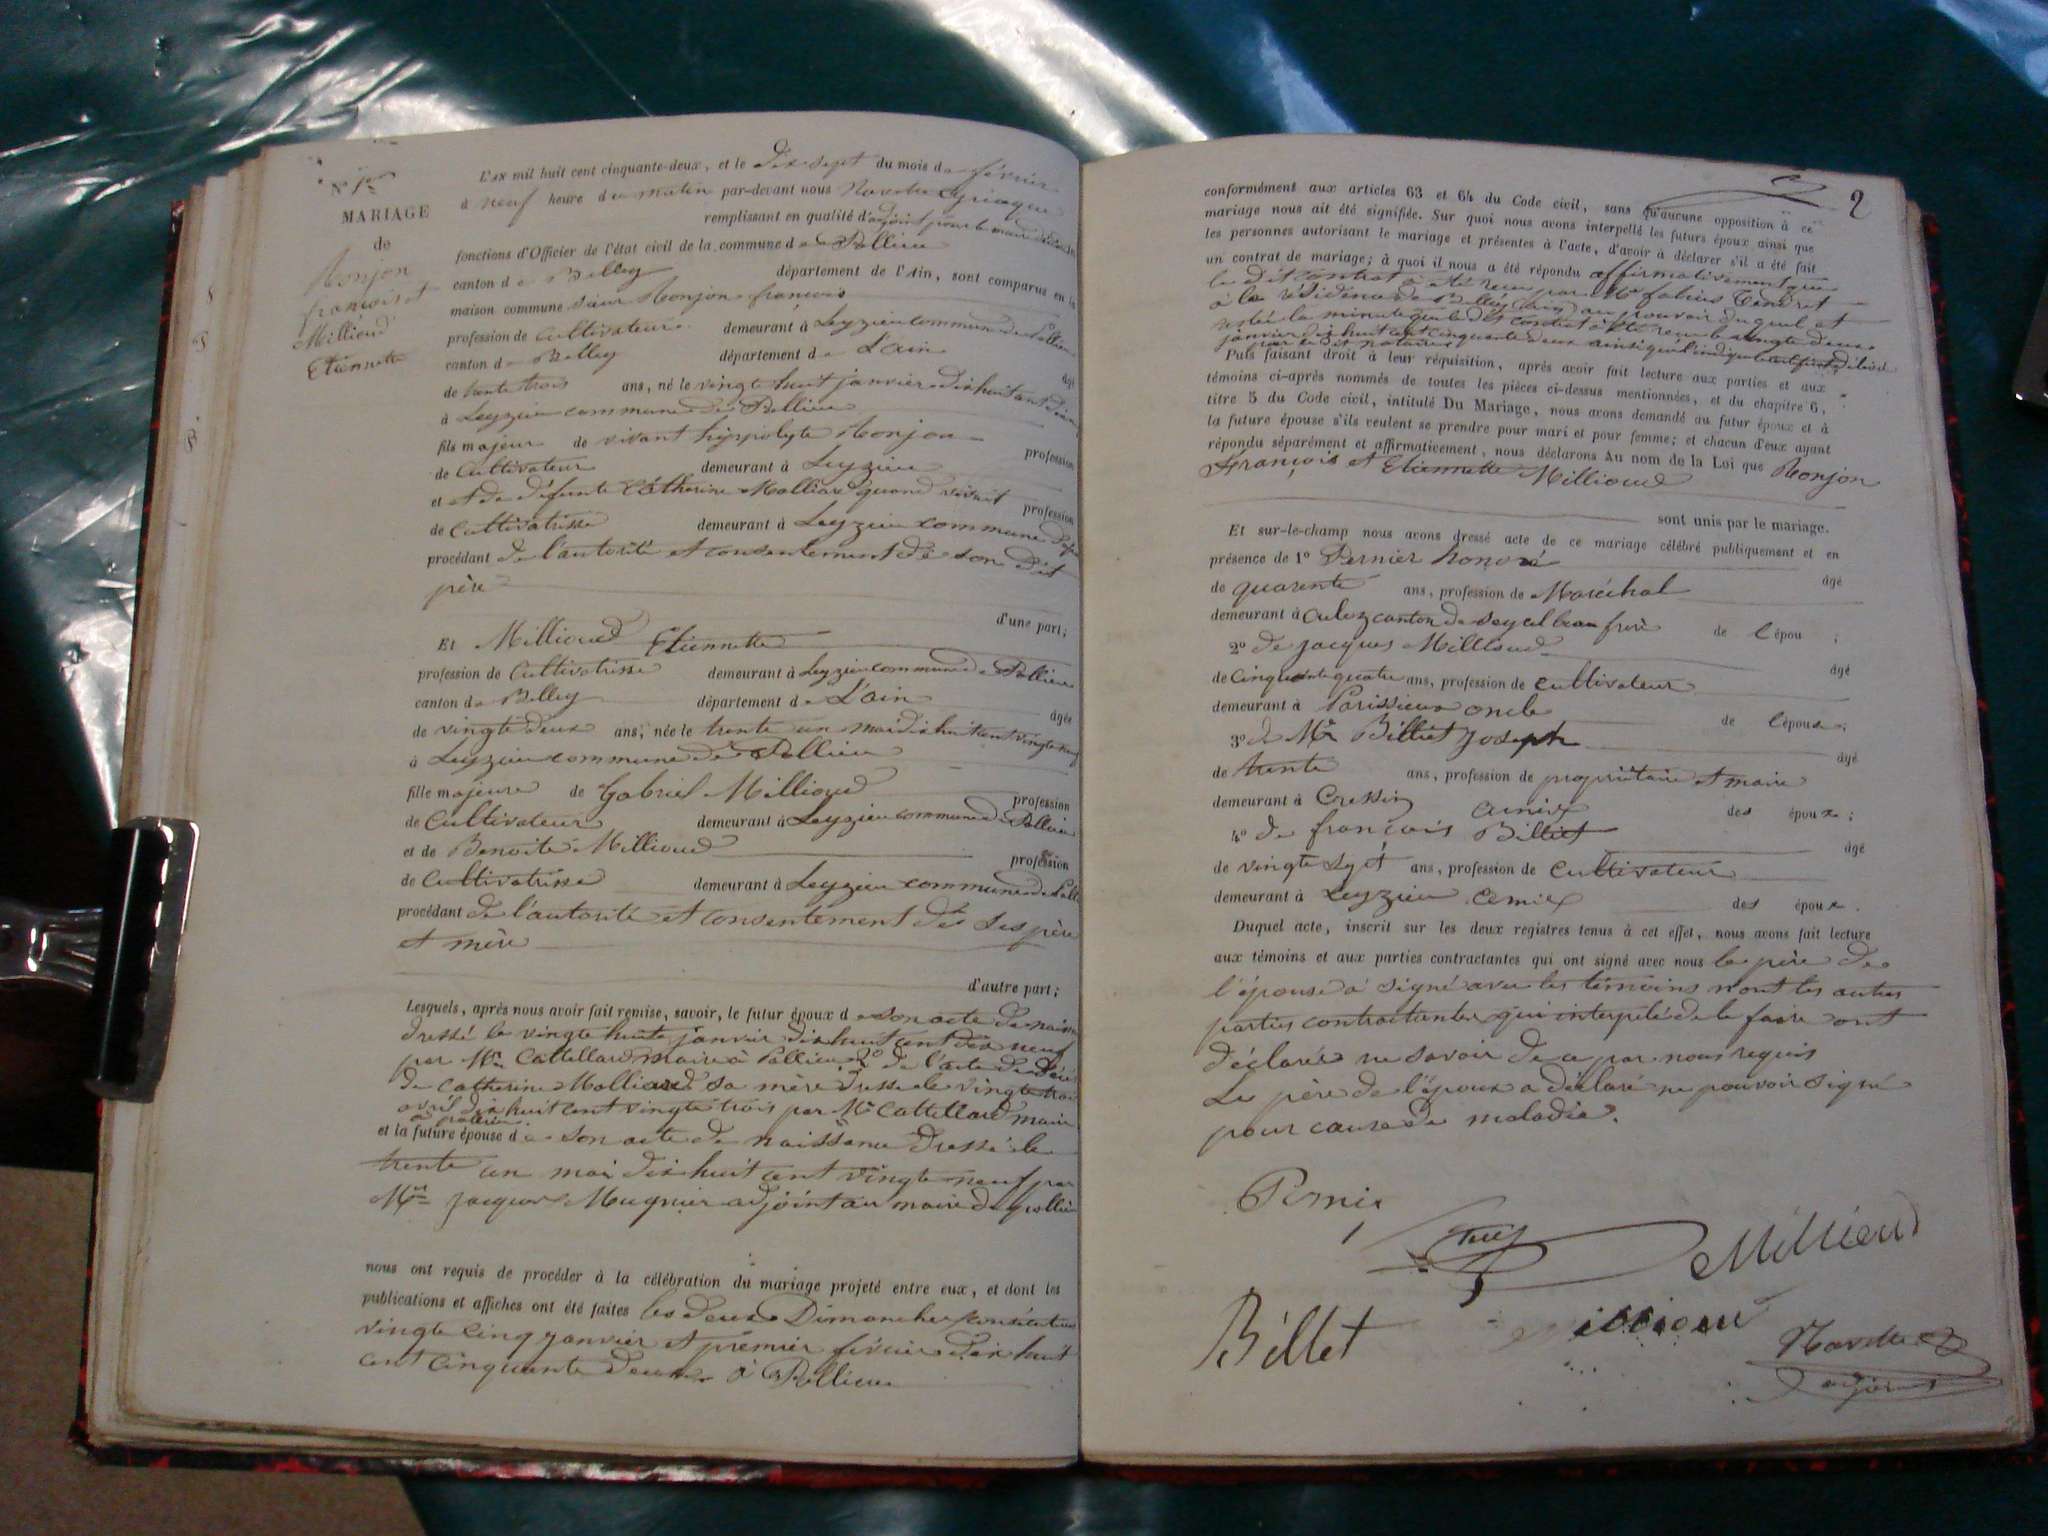 MARIAGE
de
Monjon
françois et
Millioud
Etiennette
L'AN mil huit cent cinquante-deux, et le dix sept du mois de février
à neuf heure du matin par-devant nous
remplissant en qualité d'adjoint pour le maire
fonctions d'Officier de l'état civil de la commune de Pollieu
canton de Belley département de l'Ain, sont comparus en la
maison commune sieur Monjon françois
profession de Cultivateur demeurant à Leyzieu commune de Pollieu
canton de Belley département de L'ain âgé
de trente trois ans, né le vingt huit janvier dix huit cent dix neuf
à Leyzieu commune de Pollieu
fils majeur de vivant hippolyte Monjon profession
de Cultivateur demeurant à Leyzieu
et et de défunte Catherine Molliard quand vivait profession
de Cultivatrisse demeurant à Leyzieu commune de
procédant de l'autorité et consentement de son dit
père
d'une part;
Et Millioud Etiennette
profession de Cultivatrisse demeurant à Leyzieu commune de Pollieu
canton de Belley département de L'ain âgée
de vingt deux ans, née le trente un mai dix huit cent vingt neuf
à Leyzieu commune de Pollieu
fille majeure de Gabriel Millioud profession
de Cultivateur demeurant à Leyzieu commune de Pollieu
et de Benoite Millioud profession
de Cultivatrisse demeurant à Leyzieu commune de
procédant de l'autorité et consentement des ses père
et mère
d'autre part;
Lesquels, après nous avoir fait remise, savoir, le futur époux de son acte de
dressé le vingt huite janvier dix huit cent dix neuf
par Mr Cattellard maire à Pollieu 2º de l'acte de décès
de Catherine Molliard sa mère dresse le vingte trois
avril dix huit cent vingte trois par Mr Cattellard maire
à Pollieu.
et la future épouse de son acte de naissance dressé le
trente un mai dix huit cent vingte neuf par
Mr Jacques Mugnier adjoint au maire de pollieu
nous ont requis de procéder à la célébration du mariage projeté entre eux, et dont les
publications et affiches ont été faites les deux Dimanches
vingte cinq janvier et premier février dix huit
cent cinquante deux à Pollieu
2
conformément aux articles 63 et 64 du Code civil, sans qu'aucune opposition à ce
mariage nous ait été signifiée. Sur quoi nous avons interpellé les futurs époux ainsi que
les personnes autorisant le mariage et présentes à l'acte, d'avoir à déclarer s'il a été fait
un contrat de mariage; à quoi il nous a été répondu affirmativement que
le dit contrat à été reçu par Me
à la résidence de Belley (ain) au pouvoir duquel et
resté la minute que le dit contrat à été reçu le vingte deux
janvier dix huit cent cinquante deux ainsi
Puis faisant droit à leur réquisition, après avoir fait lecture aux parties et aux
témoins ci-après nommés de toutes les pièces ci-dessus mentionnées, et du chapitre 6,
titre 5 du Code civil, intitulé Du Mariage, nous avons demandé au futur époux et à
la future épouse s'ils veulent se prendre pour mari et pour femme; et chacun d'eux ayant
répondu séparément et affirmativement, nous déclarons Au nom de la Loi que Monjon
François et Etiennette Millioud
sont unis par le mariage.
Et sur-le-champ nous avons dressé acte de ce mariage célébré publiquement et en
présence de 1º Pernier honoré
de quarente ans, profession de Maréchal âgé
demeurant à Culoz canton de Seysel beau frère de l'épou ;
2º de jacques Millioud
de Cinquante quatre ans, profession de Cultivateur âgé
demeurant à Parissieux oncle de l'épouse;
3º de Mr Billiet Joseph
de trente ans, profession de propriétaire et maire âgé
demeurant à Cressin amix des époux;
4º de françois Billiet
de vingte sept ans, profession de Cultivateur âgé
demeurant à Leyzieu amix des époux.
Duquel acte, inscrit sur les deux registres tenus à cet effet, nous avons fait lecture
aux témoins et aux parties contractantes qui ont signé avec nous le père de
l'épouse à signé avec les témoins nont les autres
parties contractantes qui interpelé de le faire ont
déclarés ne savoir de ce par nous requis
Le père de l'époux a déclaré ne pouvoir signé
pour cause de maladie.
Millioud
Billet
adjoint